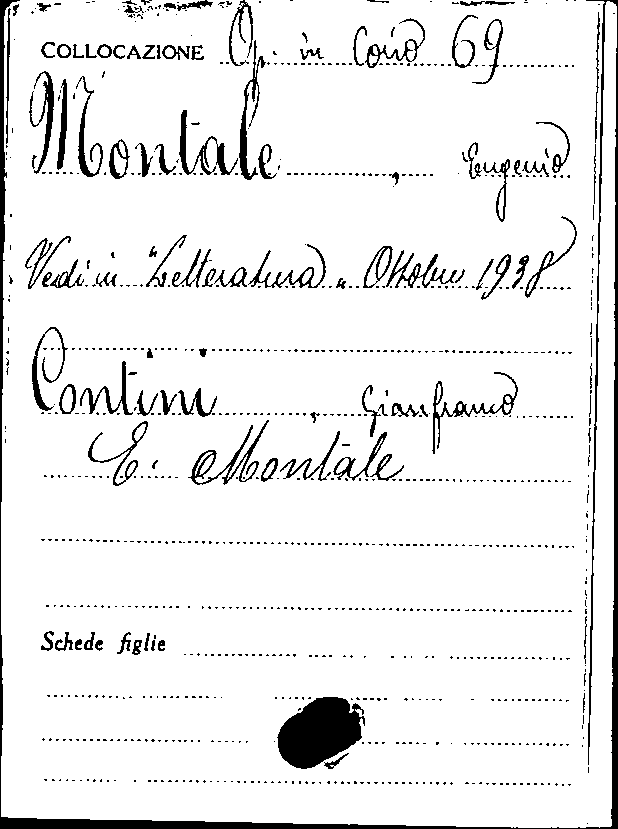 COLLOCAZIONE Op. in Corso 69
Montale, Eugenio
Vedi in "Letteratura" Ottobre 1938
Contini, Gianfranco
E. Montale
Schede figlie